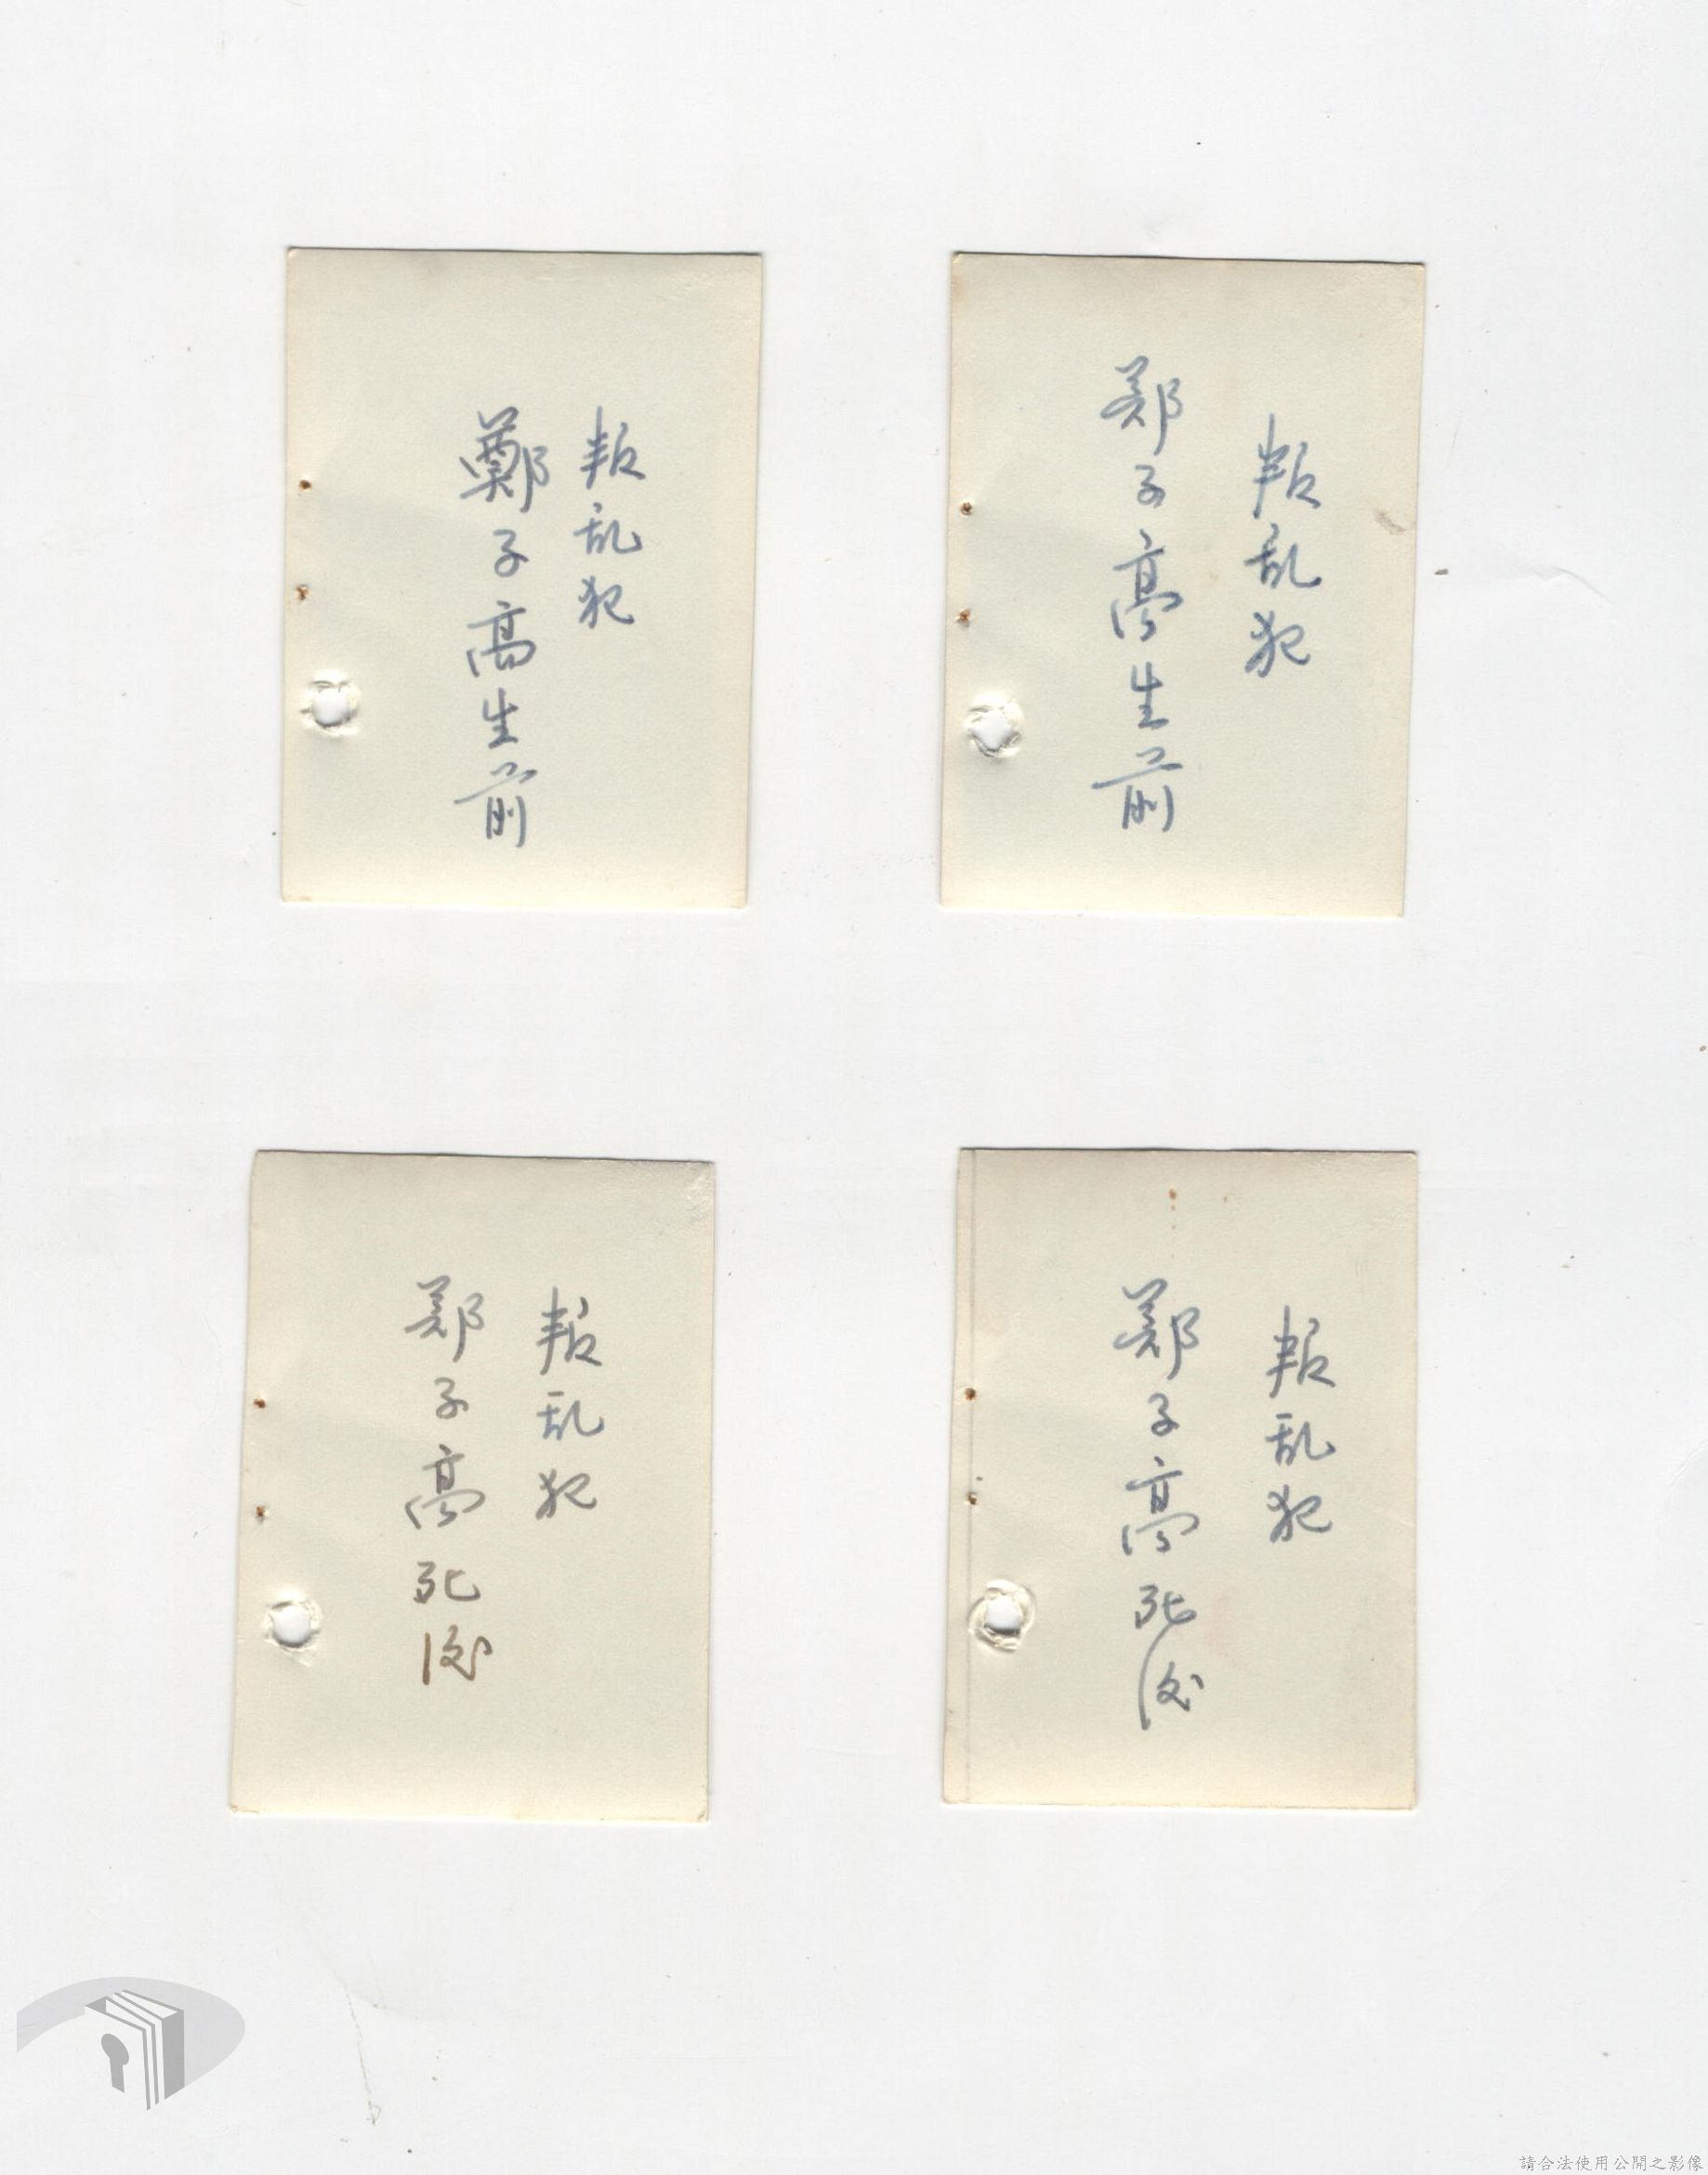 叛乱犯
鄭子高生前
叛乱犯
鄭子高生前
叛乱犯
鄭子高死後
叛乱犯
鄭子高死後
請合法使用公開之影像